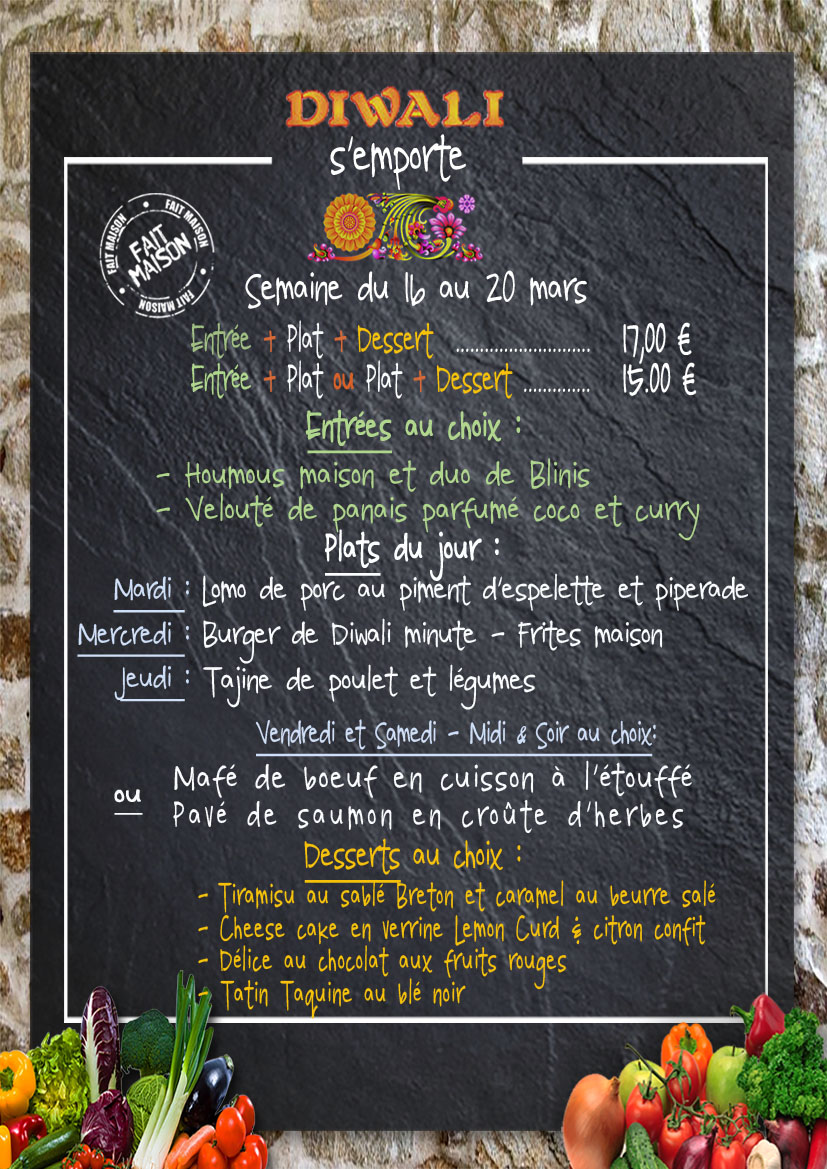 DIWALI
s'emporte
FAIT MAISON • FAIT MAISON • FAIT MAISON
FAIT
MAISON
Semaine du 16 au 20 mars
Entrée + Plat + Dessert ............................ 17,00 €
Entrée + Plat ou Plat + Dessert .............. 15.00 €
Entrées au choix :
- Houmous maison et duo de Blinis
- Velouté de panais parfumé coco et curry
Plats du jour :
Mardi : Lomo de porc au piment d'espelette et piperade
Mercredi : Burger de Diwali minute - Frites maison
Jeudi : Tajine de poulet et légumes
Vendredi et Samedi - Midi & Soir au choix:
Mafé de boeuf en cuisson à l'étouffé
ou
Pavé de saumon en croûte d'herbes
Desserts au choix :
- Tiramisu au sablé Breton et caramel au beurre salé
- Cheese cake en verrine Lemon Curd & citron confit
- Délice au chocolat aux fruits rouges
- Tatin Taquine au blé noir